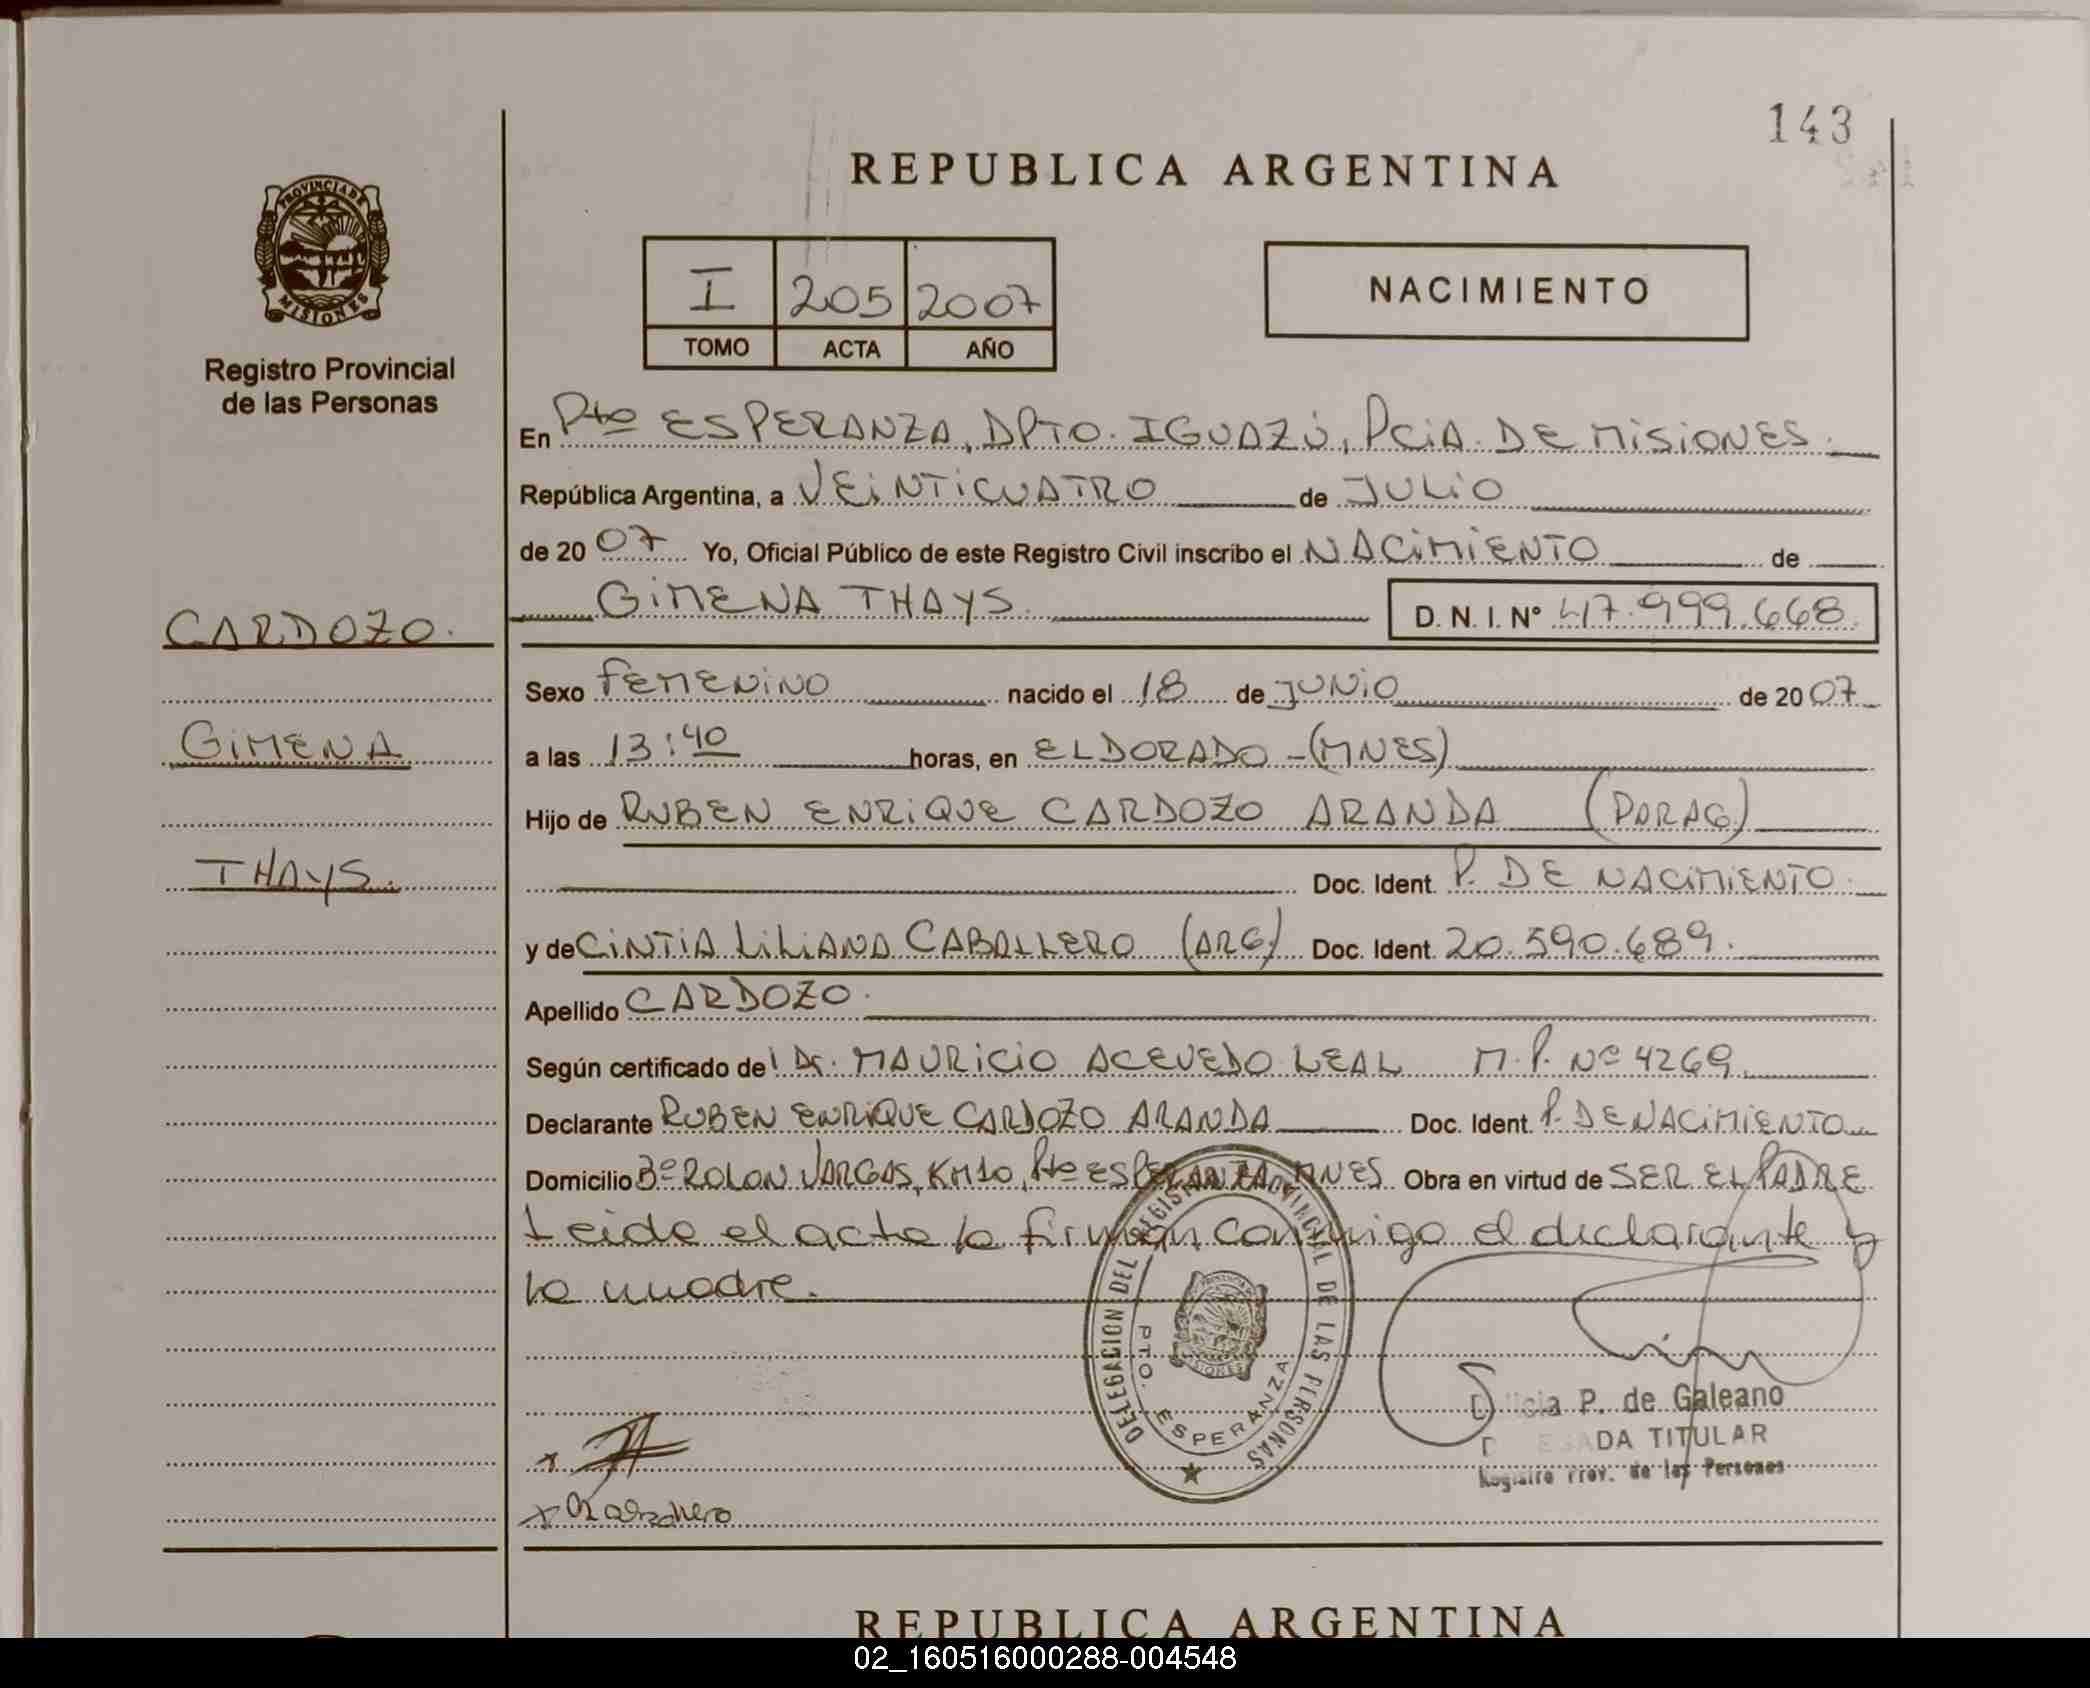 143
REPUBLICA ARGENTINA
PROVINCIA DE MISIONES
I 205 2007
TOMO ACTA AÑO
NACIMIENTO
Registro Provincial
de las Personas
En Pto ESPERANZA, DPTO. IGUAZÚ, PCiA. DE MiSiONES.
República Argentina, a VEiNTiCUATRO de JULiO
de 2007 Yo, Oficial Público de este Registro Civil inscribo el NACiMiENTO de
GiMENA THAYS. D. N. I. Nº 47.999.668.
CARDOZO.
Sexo FEMENiNO nacido el 18 de JUNiO de 2007
GiMENA
a las 13:40 horas, en ELDORADO - (MNES)
Hijo de RUBEN ENRiQUE CARDOZO ARANDA (PARAG)
THAYS.
Doc. Ident. P. DE NACiMiENTO.
y de CiNTiA LiLiANA CABALLERO (ARG) Doc. Ident. 20.590.689.
Apellido CARDOZO.
Según certificado del Dr. MAURiCiO ACEVEDO LEAL M.P. Nº 4269.
Declarante RUBEN ENRiQUE CARDOZO ARANDA Doc. Ident. P. DE NACiMiENTO
Domicilio Bº ROLON VARGAS, KM10, Pto ESPERANZA, MNES. Obra en virtud de SER EL PADRE
Leida el acta la firman conmigo el declarante y
la madre.
DELEGACION DEL REGISTRO PROVINCIAL DE LAS PERSONAS
PTO. ESPERANZA
MISIONES
P. de Galeano
TITULAR
Registro Prov. de las Personas
REPUBLICA ARGENTINA
02_160516000288-004548